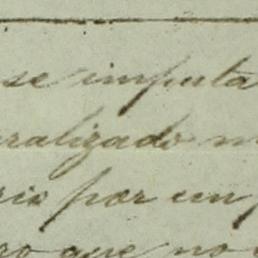 se imputa
ralizado
rio por un
ro que no